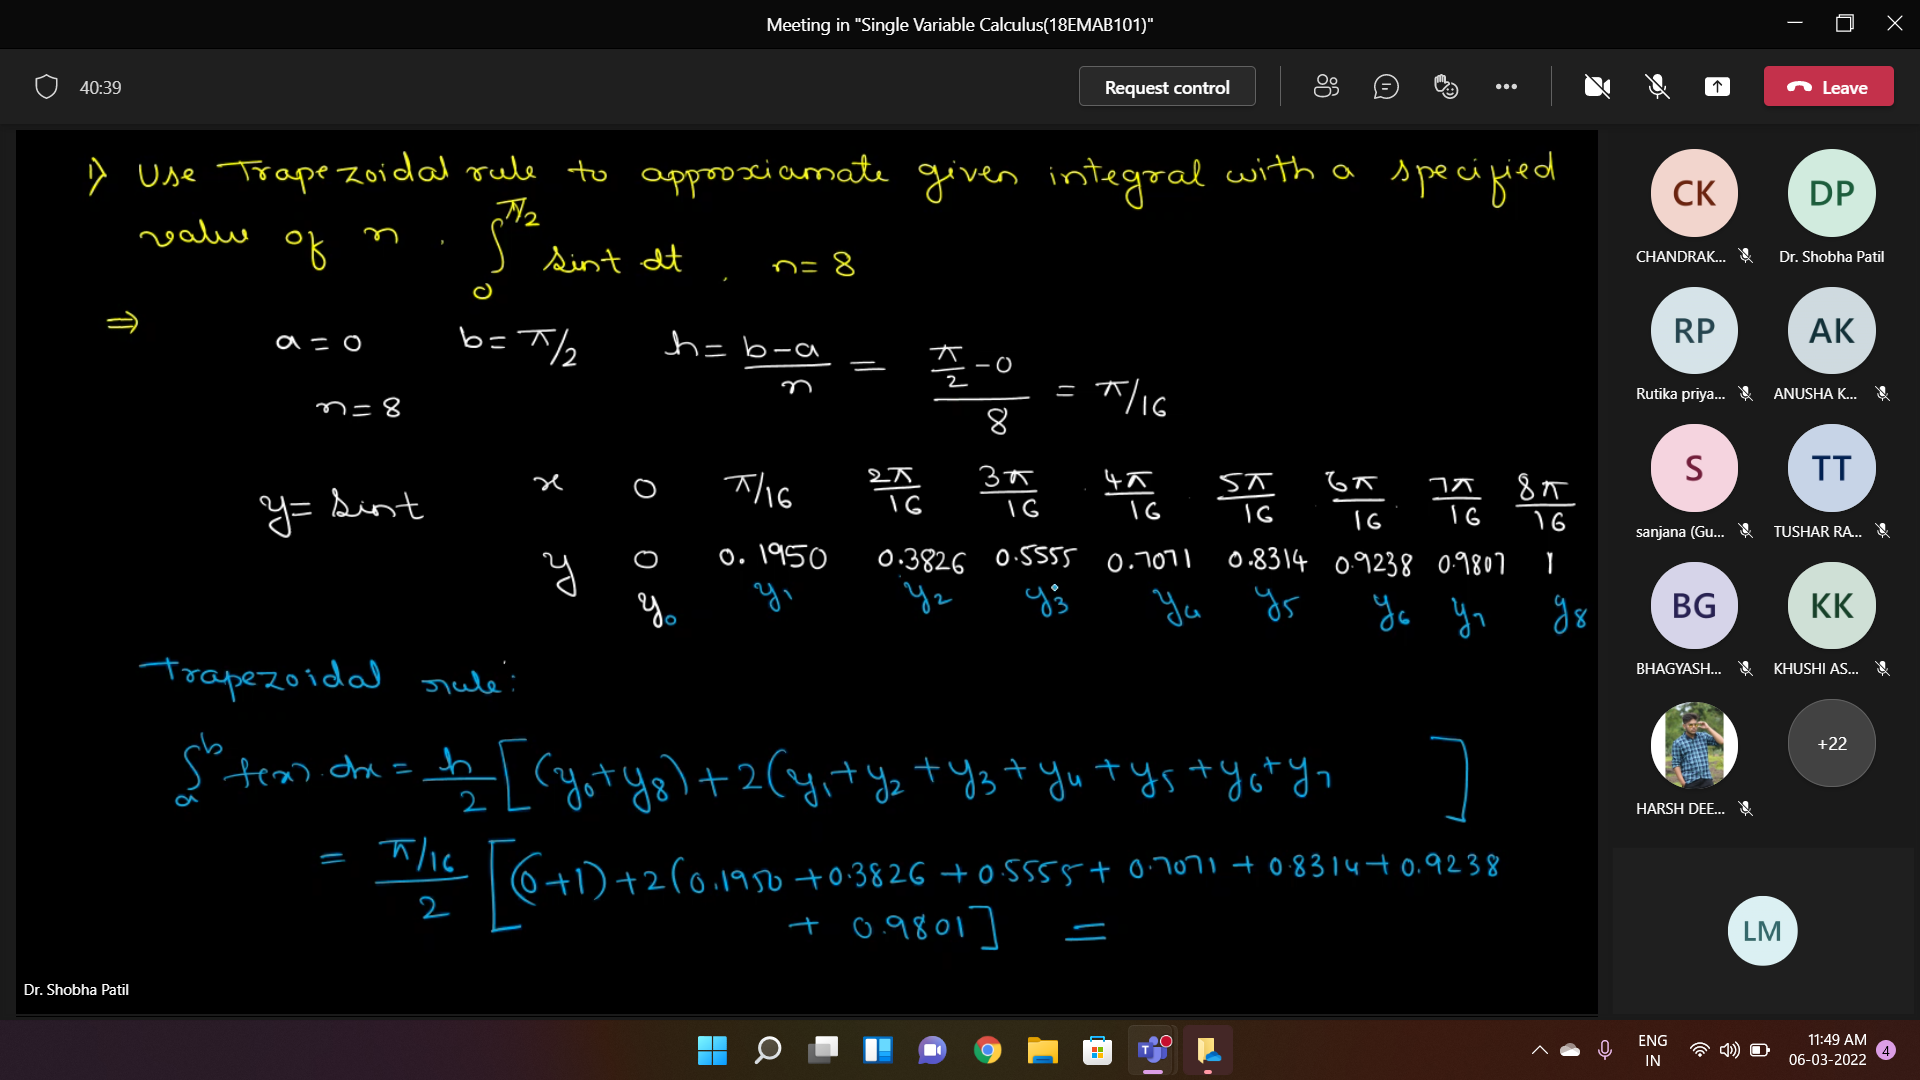 Meeting in "Single Variable Calculus(18EMAB101)"
40:39
Request control
Leave
1) Use Trapezoidal rule to approxiamate given integral with a specified
value of n . ∫₀^π/2 sint dt , n = 8
⇒ a = 0 b = π/2 h = (b-a)/n = (π/2 - 0)/8 = π/16
n = 8
y = sint
x 0 π/16 2π/16 3π/16 4π/16 5π/16 6π/16 7π/16 8π/16
y 0 0.1950 0.3826 0.5555 0.7071 0.8314 0.9238 0.9807 1
y₀ y₁ y₂ y₃ y₄ y₅ y₆ y₇ y₈
Trapezoidal rule:
∫ₐᵇ f(x).dx = h/2 [(y₀+y₈)+2(y₁+y₂+y₃+y₄+y₅+y₆+y₇ ]
= (π/16)/2 [(0+1)+2(0.1950+0.3826+0.5555+0.7071+0.8314+0.9238
+ 0.9801] =
Dr. Shobha Patil
CK
CHANDRAK...
DP
Dr. Shobha Patil
RP
Rutika priya...
AK
ANUSHA K...
S
sanjana (Gu...
TT
TUSHAR RA...
BG
BHAGYASH...
KK
KHUSHI AS...
HARSH DEE...
+22
LM
ENG
IN
11:49 AM
06-03-2022
4